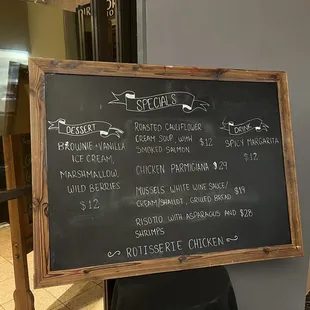 SPECIALS
DESSERT
BROWNIE + VANILLA
ICE CREAM,
MARSHMALLOW,
WILD BERRIES
$12
ROASTED CAULIFLOWER
CREAM SOUP WITH
SMOKED SALMON $12
CHICKEN PARMIGIANA $29
MUSSELS WHITE WINE SAUCE/
CREAM/SHALLOT, GRILLED BREAD $19
RISOTTO WITH ASPARAGUS AND
SHRIMPS $28
ROTISSERIE CHICKEN
DRINK
SPICY MARGARITA
$12